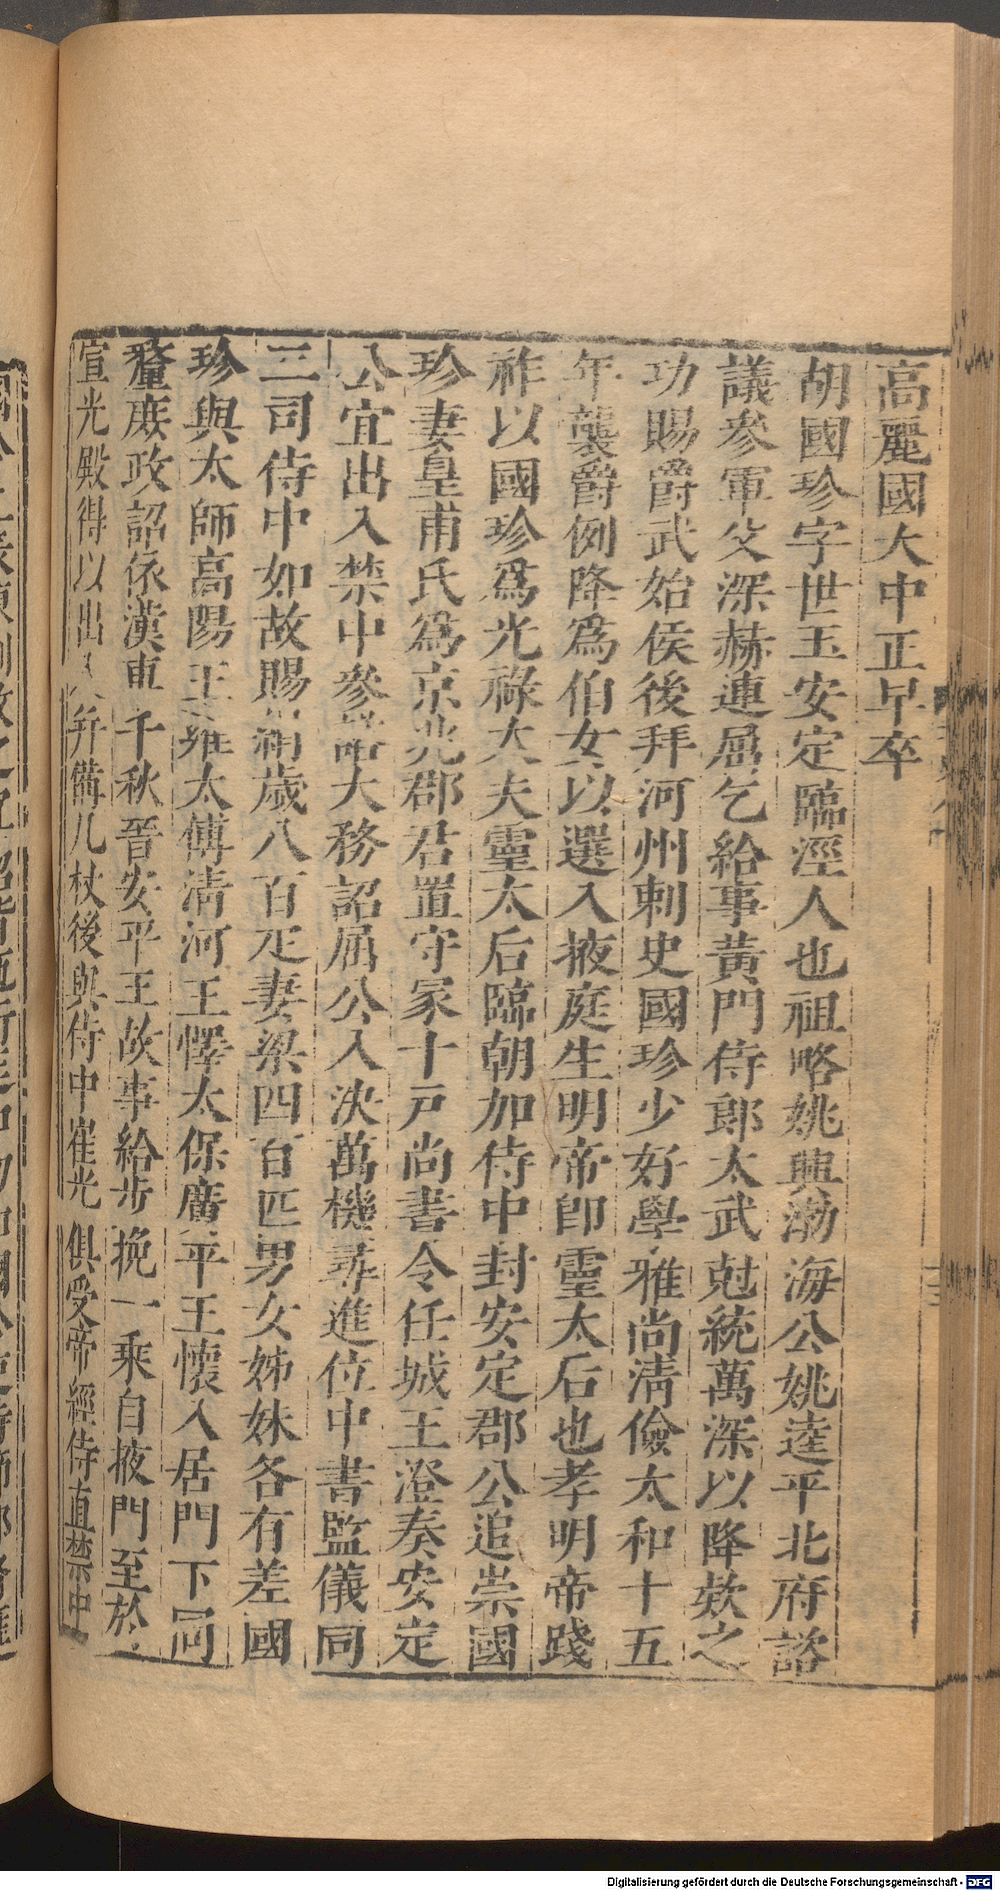 高麗國大中正早卒
胡國珍字世玉安定臨涇人也祖略姚興渤海公姚逵平北府諮
議參軍父深赫連屈乞給事黃門侍郎太武尅統萬深以降欵之
功賜爵武始侯後拜河州刺史國珍少好學雅尚淸儉太和十五
年襲爵例降爲伯女以選入掖庭生明帝卽靈太后也孝明帝踐
祚以國珍爲光祿大夫靈太后臨朝加侍中封安定郡公追崇國
珍妻皇甫氏爲京兆郡君置守冢十戸尚書令任城王澄奏安定
公宜出入禁中參諮大務詔屈公入決萬機尋進位中書監儀同
三司侍中如故賜絹歲八百疋妻梁四百匹男女姊妹各有差國
珍與太師高陽王雍太傅淸河王懌太保廣平王懷入居門下同
釐庶政詔依漢車千秋晉安平王故事給步挽一乘自掖門至於
宣光殿得以出入并備几杖後與侍中崔光俱受帝經侍直禁中
Digitalisierung gefördert durch die Deutsche Forschungsgemeinschaft - DFG